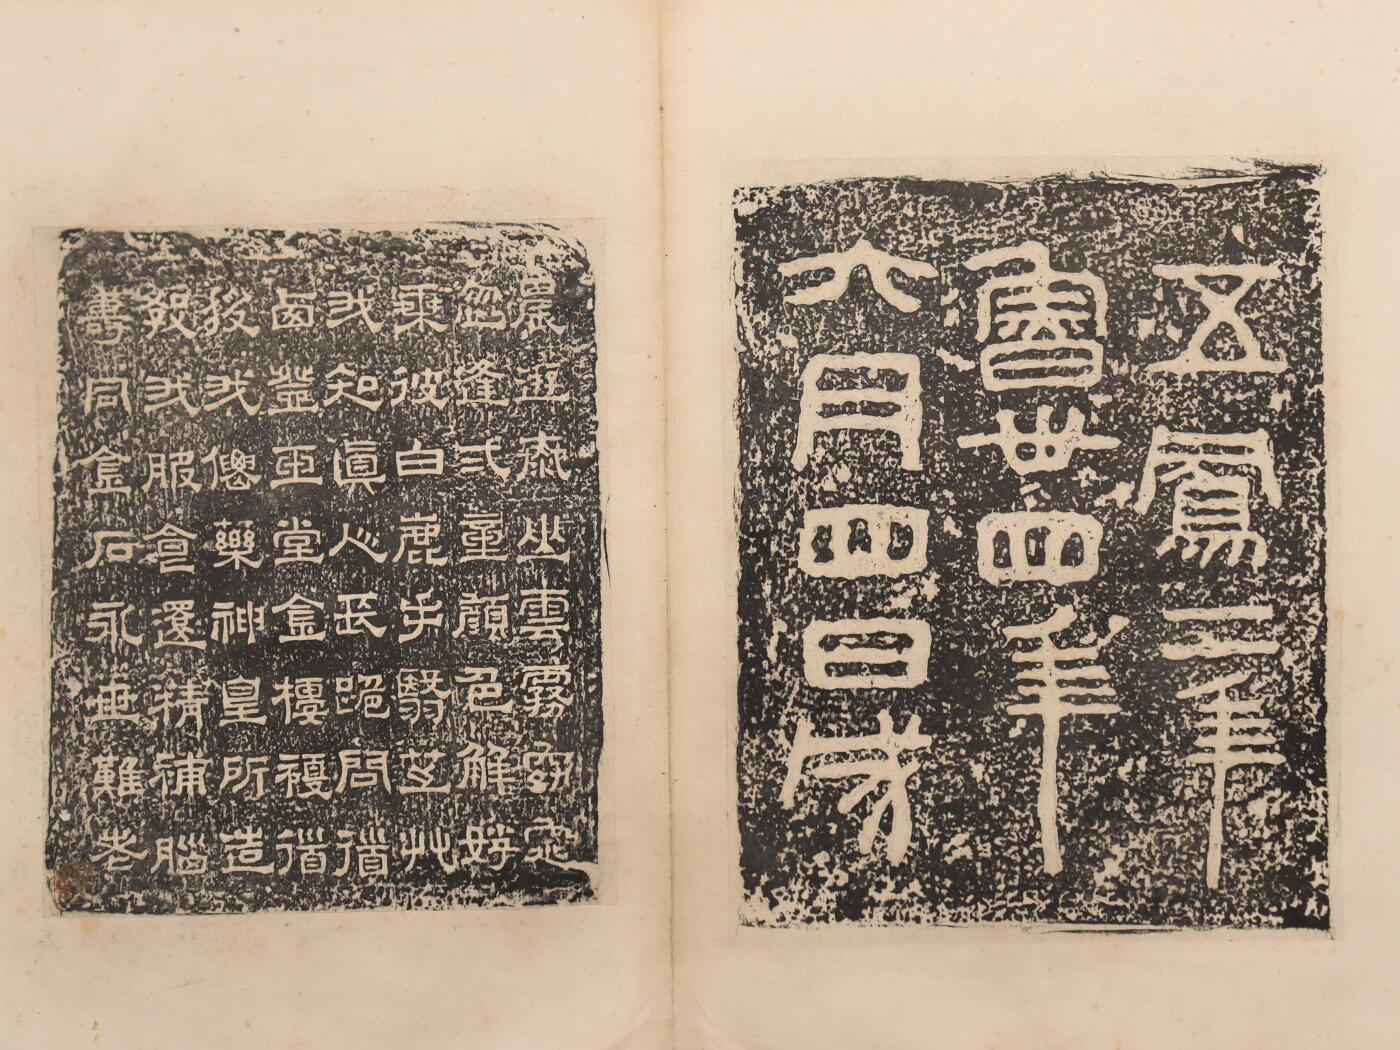 五鳳二年
魯卅四年
六月四日成
晨遊泰山雲霧窈窕
忽逢弍童顏色鮮好
乘彼白鹿手翳芝艸
我知真人長跪問道
西登玉堂金樓複道
授我僊藥神皇所造
教我服食還精補腦
壽同金石永世難老